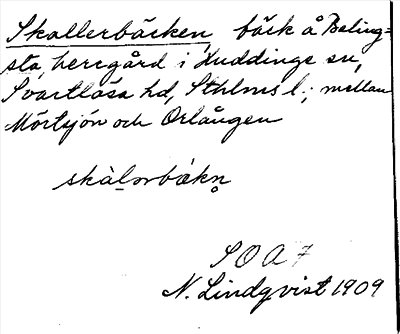 Skallerbäcken, bäck å Beling=
sta, herrgård i Huddinge sn,
Svartlösa hd, Sthlms l.; mellan
Mörtsjön och Orlången
skàlorbäkn̥
S O A 7
N. Lindqvist 1909